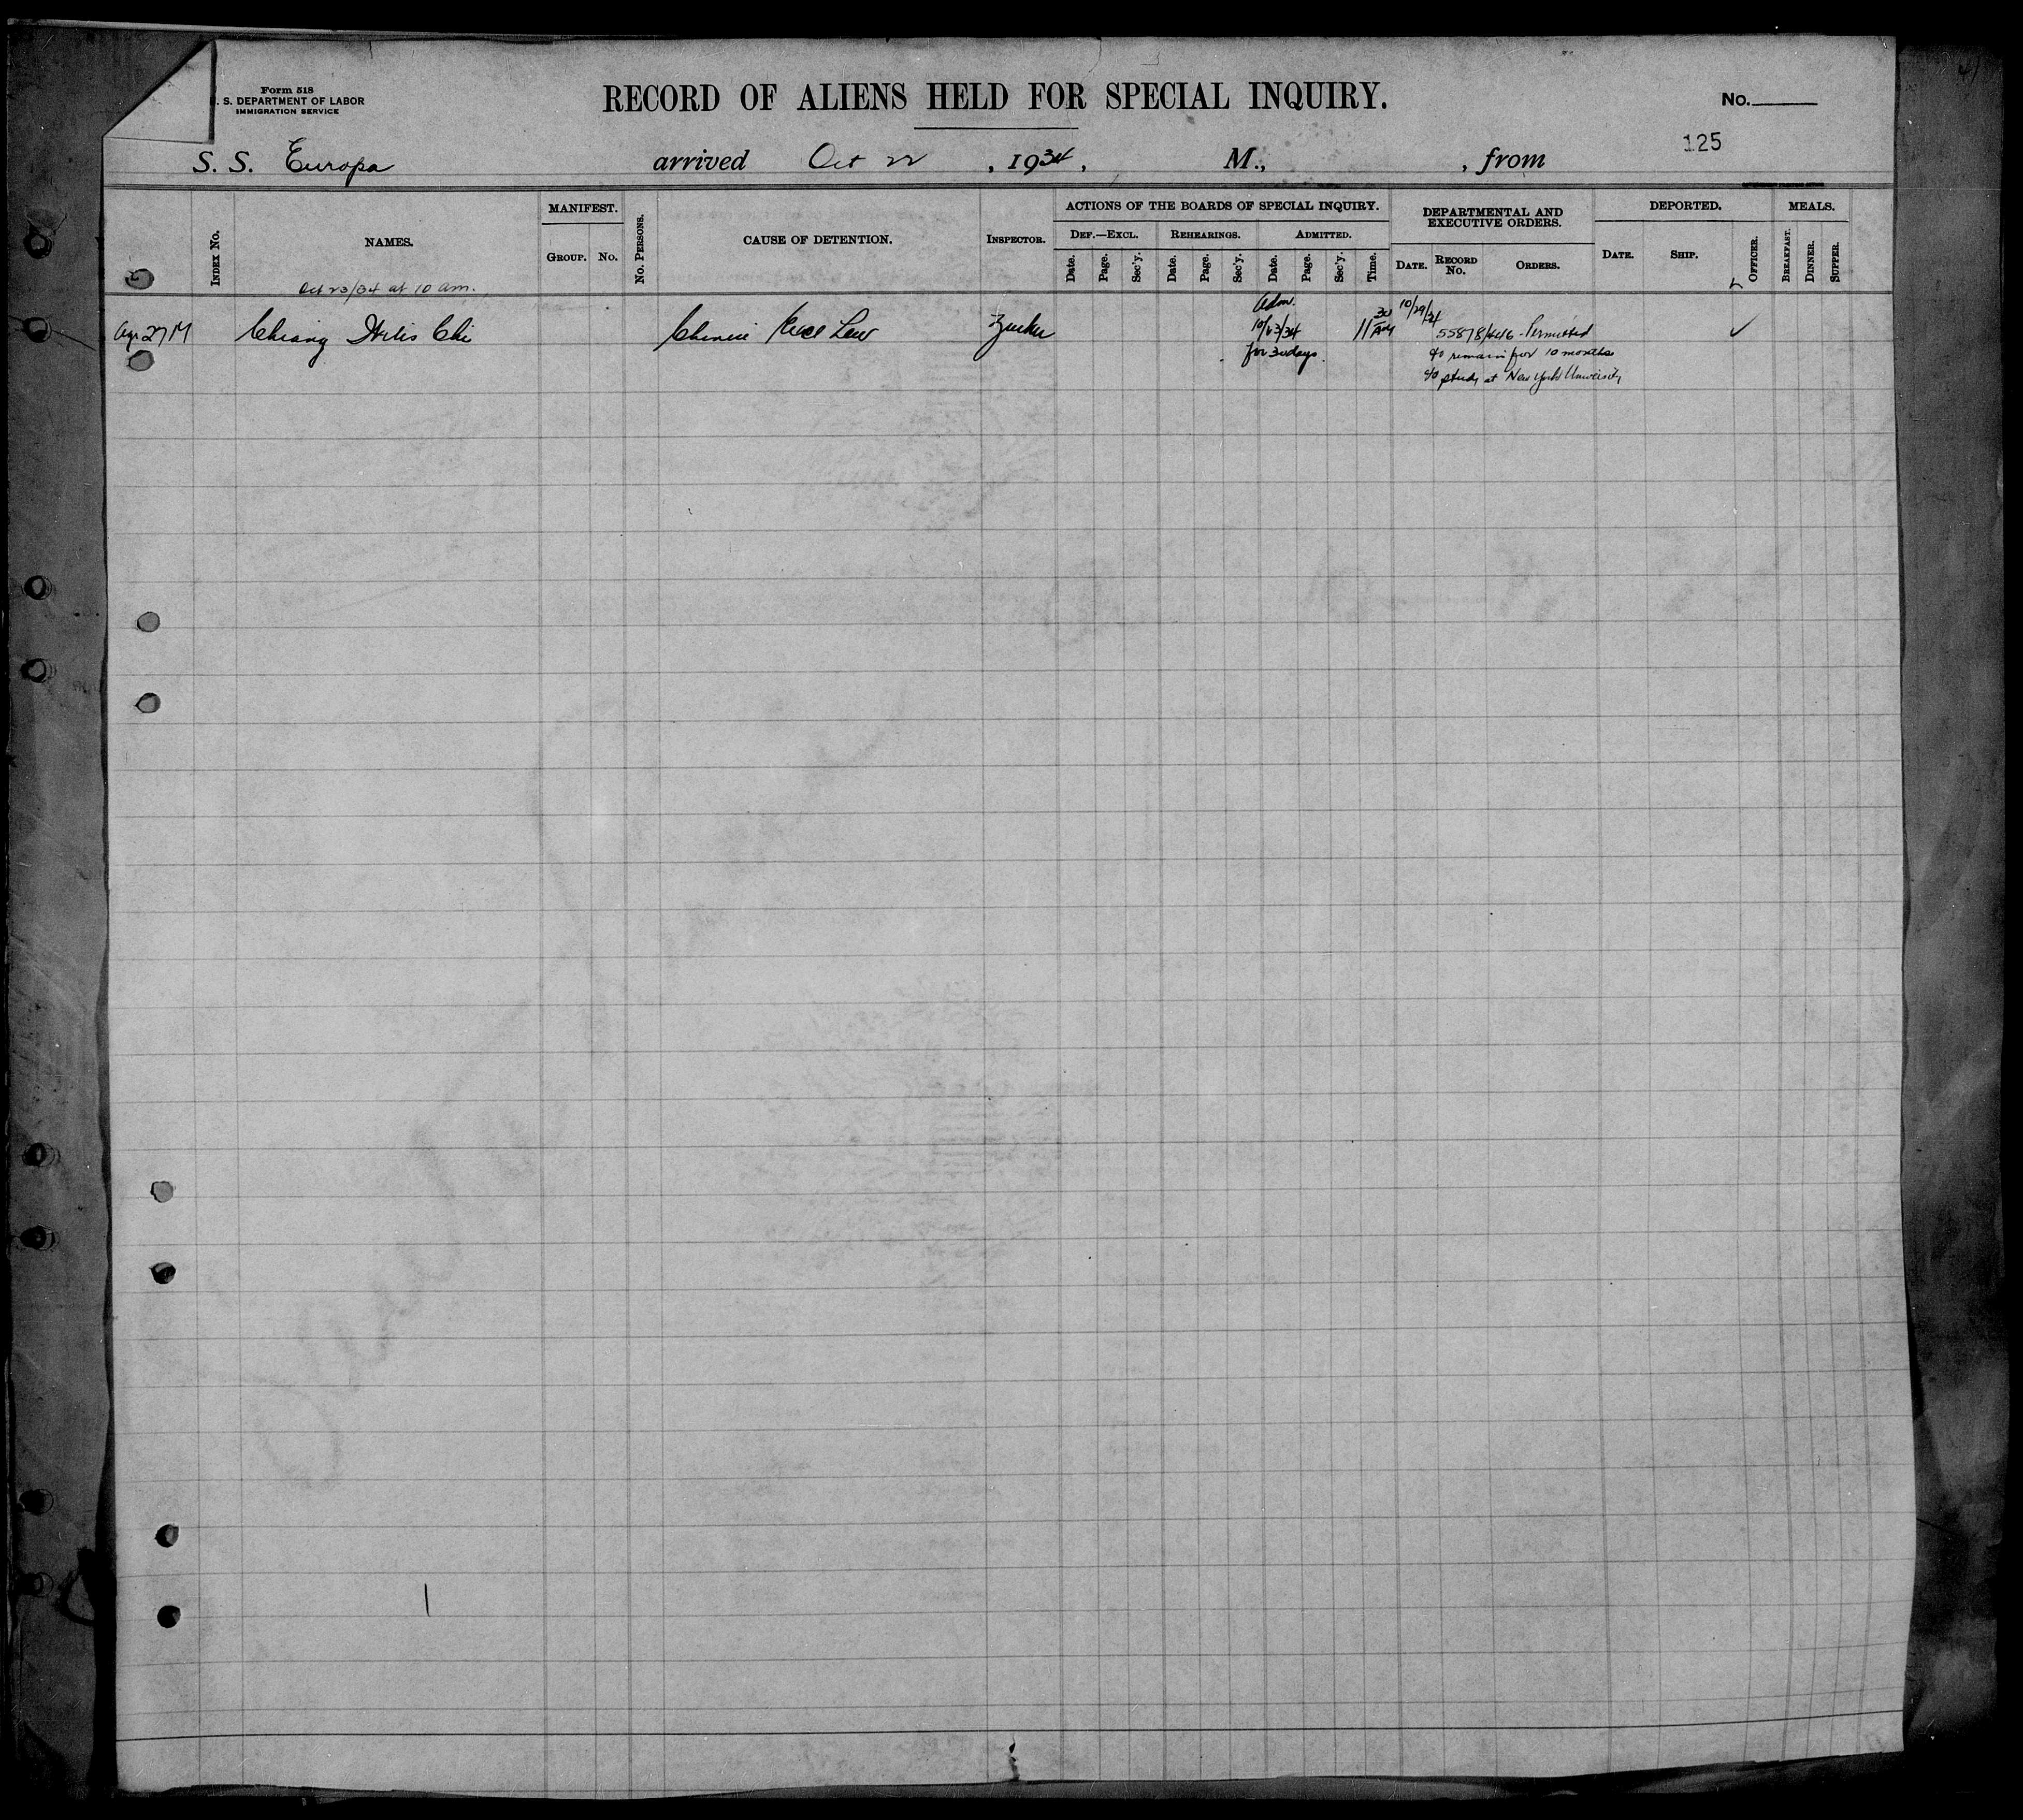 Form 518
U. S. DEPARTMENT OF LABOR
IMMIGRATION SERVICE
RECORD OF ALIENS HELD FOR SPECIAL INQUIRY.
No.
125
S. S. Europa arrived Oct 22, 1934, M., , from
INDEX No.
NAMES.
MANIFEST.
GROUP. No.
No. PERSONS.
CAUSE OF DETENTION.
INSPECTOR.
ACTIONS OF THE BOARDS OF SPECIAL INQUIRY.
DEF.—EXCL. REHEARINGS. ADMITTED.
Date. Page. Sec'y. Date. Page. Sec'y. Date. Page. Sec'y. Time.
DEPARTMENTAL AND
EXECUTIVE ORDERS.
DATE. RECORD No. ORDERS.
DEPORTED.
DATE. SHIP. OFFICER.
MEALS.
BREAKFAST. DINNER. SUPPER.
Oct 23/34 at 10 am.
27 M Chiang Chi
Chinese Excl Law
Adm.
10/23/34
for 30 days.
11 30 AM
10/29/34
55878/446 - Permitted
to remain for 10 months
to study at New York University